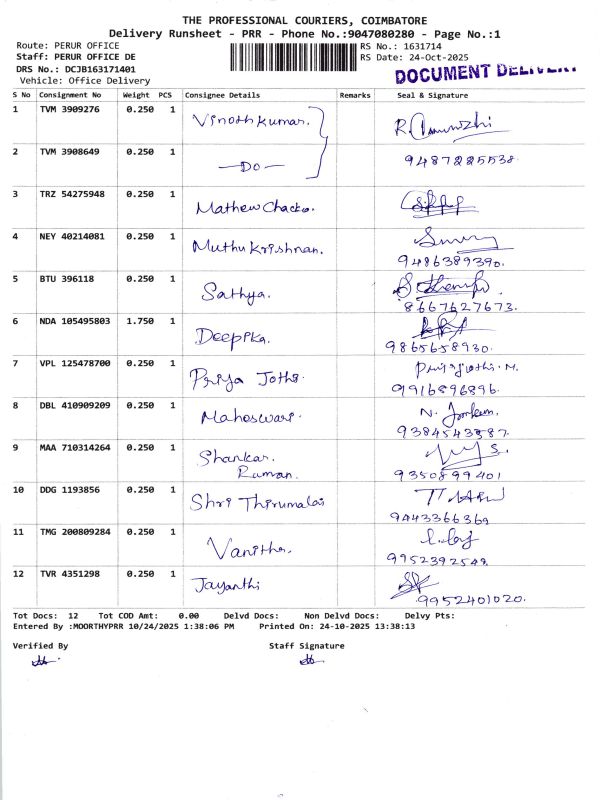 THE PROFESSIONAL COURIERS, COIMBATORE
Delivery Runsheet - PRR - Phone No.:9047080280 - Page No.:1
Route: PERUR OFFICE
RS No.: 1631714
Staff: PERUR OFFICE DE
RS Date: 24-Oct-2025
DRS No.: DCJB163171401
DOCUMENT DELIVERY
Vehicle: Office Delivery
S No Consignment No Weight PCS Consignee Details Remarks Seal & Signature
1 TVM 3909276 0.250 1 Vinothkumar.
2 TVM 3908649 0.250 1 —Do— 9487225538.
3 TRZ 54275948 0.250 1 Mathew Chacko.
4 NEY 40214081 0.250 1 Muthu Krishnan.
9486389390.
5 BTU 396118 0.250 1 Sathya.
8667627673.
6 NDA 105495803 1.750 1 Deepika.
9865658930.
7 VPL 125478700 0.250 1 Priya Jothi. Priyajothi. M.
9916896896.
8 DBL 410909209 0.250 1 Maheswari.
9384543587.
9 MAA 710314264 0.250 1 Shankar.
Raman. 9350899401
10 DDG 1193856 0.250 1 Shri Thirumalai
9443366369
11 TMG 200809284 0.250 1 Vanitha.
9952392549.
12 TVR 4351298 0.250 1 Jayanthi
9952401020.
Tot Docs: 12 Tot COD Amt: 0.00 Delvd Docs: Non Delvd Docs: Delvy Pts:
Entered By :MOORTHYPRR 10/24/2025 1:38:06 PM Printed On: 24-10-2025 13:38:13
Verified By Staff Signature